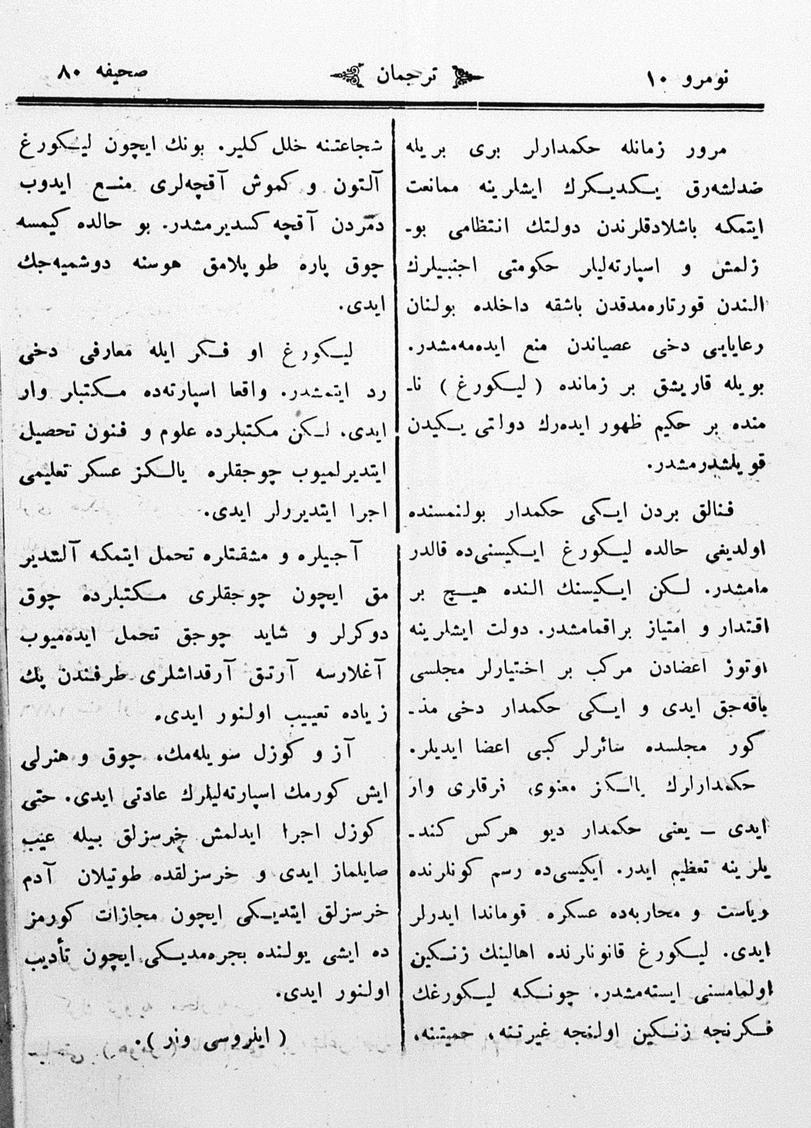 نومرو ۱۰
ترجمان
صحیفه ۸۰
مرور زمانله حکمدارلر بری بریله
ضدلشه‌رق یکدیکرك ایشلرینه ممانعت
ایتمکه باشلادقلرندن دولتك انتظامی بو-
زلمش و اسپارته‌لیلر حکومتی اجنبیلرك
الندن قورتاره‌مدقدن باشقه داخلده بولنان
رعایایی دخی عصیاندن منع ایده‌مه‌مشدر.
بویله قاریشق بر زمانده (لیکورغ) نا-
منده بر حکیم ظهور ایده‌رك دولتی یکیدن
قویلشدرمشدر.
فنالق بردن ایکی حکمدار بولنمسنده
اولدیغی حالده لیکورغ ایکیسنی‌ده قالدر
مامشدر. لکن ایکیسنك النده هیچ بر
اقتدار و امتیاز براقمامشدر. دولت ایشلرینه
اوتوز اعضادن مرکب بر اختیارلر مجلسی
باقه‌جق ایدی و ایکی حکمدار دخی مذ-
کور مجلسده سائرلر کبی اعضا ایدیلر.
حکمدارلرك یالکز معنوی فرقلری وار
ایدی — یعنی حکمدار دیو هرکس کند-
یلرینه تعظیم ایدر. ایکیسی‌ده رسم کونلرنده
ریاست و محاربه‌ده عسکره قوماندا ایدرلر
ایدی. لیکورغ قانونارنده اهالینك زنکین
اولمامسنی ایسته‌مشدر. چونکه لیکورغك
فکرنجه زنکین اولنجه غیرتنه، حمیتنه،
شجاعتنه خلل کلیر. بونك ایچون لیکورغ
آلتون و کموش آقچه‌لری منع ایدوب
دمردن آقچه کسدیرمشدر. بو حالده کیمسه
چوق پاره طوپلامق هوسنه دوشمیه‌جك
ایدی.
لیکورغ او فکر ایله معارفی دخی
رد ایتمشدر. واقعا اسپارته‌ده مکتبلر وار
ایدی. لکن مکتبلرده علوم و فنون تحصیل
ایتدیرلمیوب چوجقلره یالکز عسکر تعلیمی
اجرا ایتدیررلر ایدی.
آجیلره و مشقتلره تحمل ایتمکه آلشدیر
مق ایچون چوجقلری مکتبلرده چوق
دوکرلر و شاید چوجق تحمل ایده‌میوب
آغلارسه آرتق آرقداشلری طرفندن پك
زیاده تعییب اولنور ایدی.
آز و کوزل سویله‌مك، چوق و هنرلی
ایش کورمك اسپارته‌لیلرك عادتی ایدی. حتی
کوزل اجرا ایدلمش خرسزلق بیله عیب
صایلماز ایدی و خرسزلقده طوتیلان آدم
خرسزلق ایتدیکی ایچون مجازات کورمز
ده ایشی یولنده بجره‌مدیکی ایچون تأدیب
اولنور ایدی.
(ایلروسی وار).